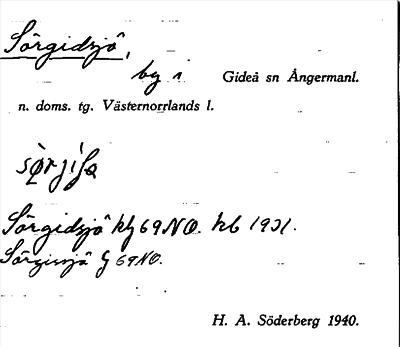 Sörgidsjö,
by i Gideå sn Ångermanl.
n. doms. tg. Västernorrlands l.
Sörgidsjö kg 69 NO. kb 1931.
Sörgissjö G 69 NO.
H. A. Söderberg 1940.